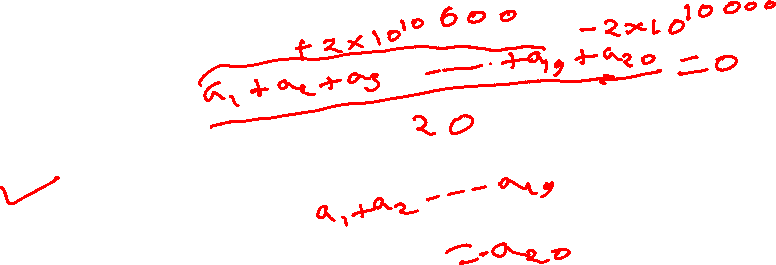 +2×10^10000 -2×10^10000
a₁+a₂+a₃ ——— . +a₁₉+a₂₀ = 0
20
a₁+a₂ ---- a₁₉
=-a₂₀